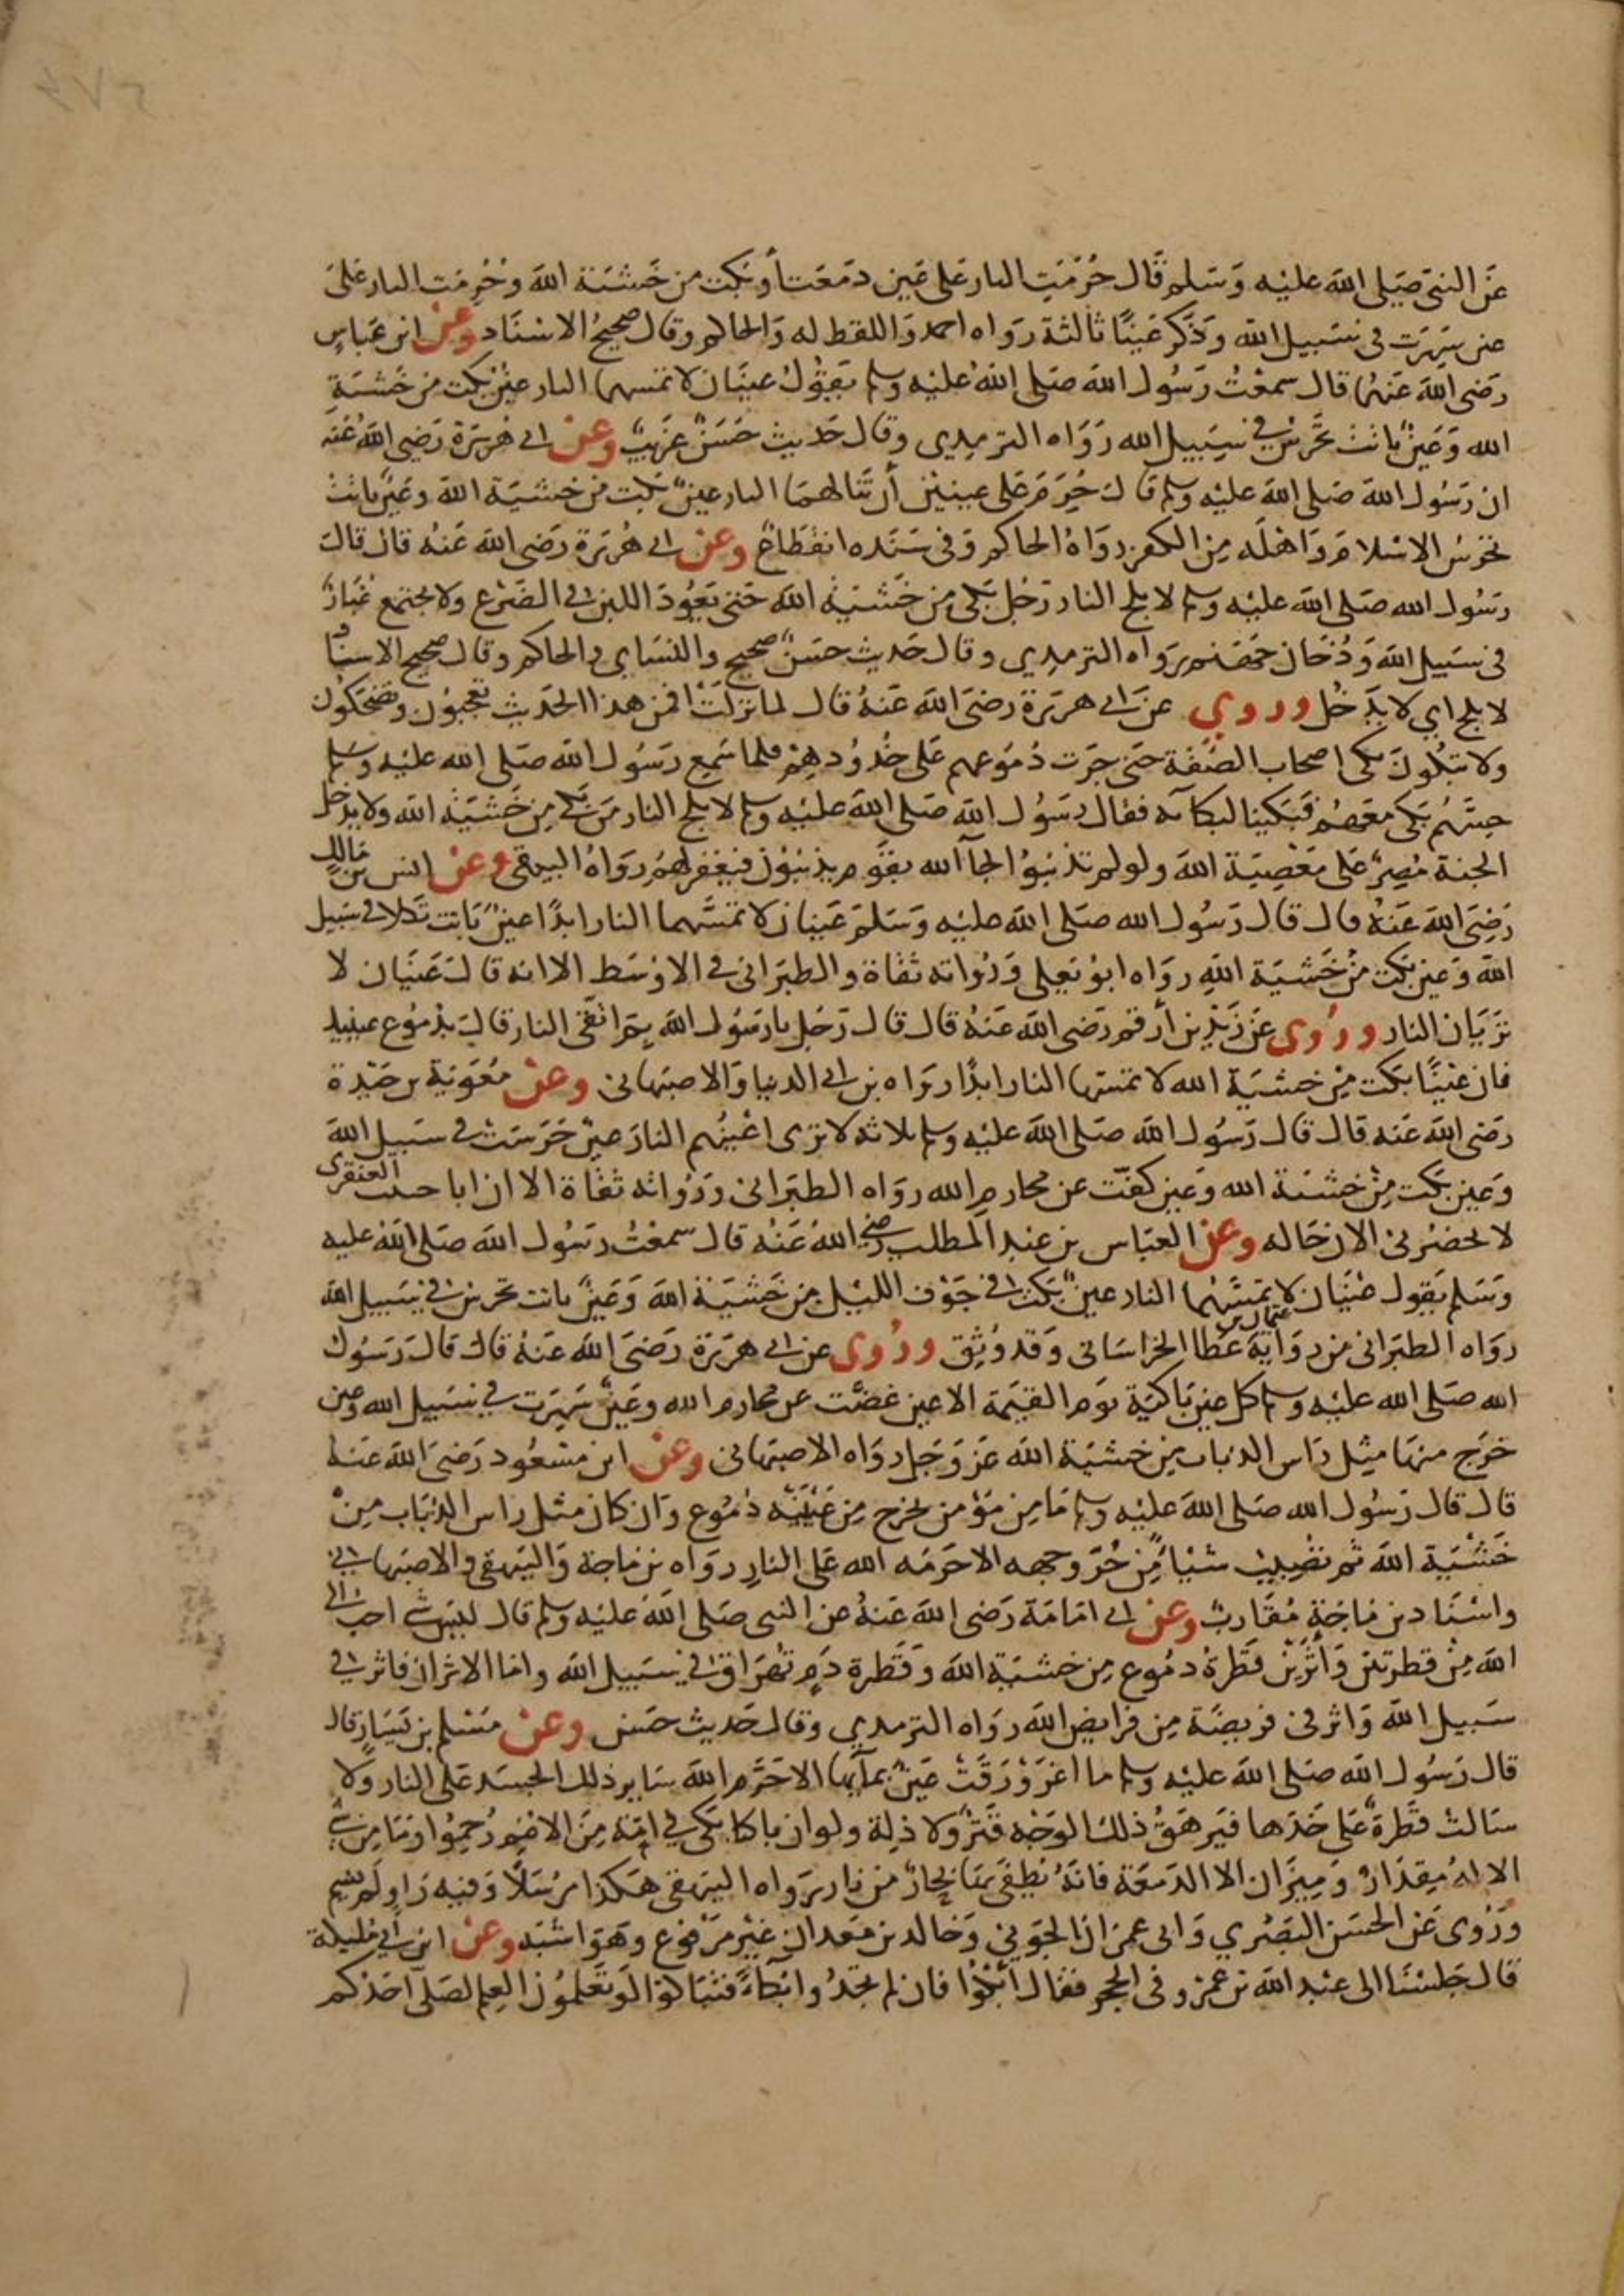 عن النبي صلى الله عليه وسلم قال حرمت النار على عين دمعت أو بكت من خشية الله وحرمت النار على
عين سهرت في سبيل الله وذكر عينا ثالثة رواه احمد واللفظ له والحاكم وقال صحيح الاسناد وعن ابن عباس
رضى الله عنهما قال سمعت رسول الله صلى الله عليه وسلم يقول عينان لا تمسهما النار عين بكت من خشية
الله وعين باتت تحرس في سبيل الله رواه الترمدي وقال حديث حسن غريب وعن ابي هريرة رضي الله عنه
ان رسول الله صلى الله عليه وسلم قال حرم على عينين أن تنالهما النار عين بكت من خشية الله وعين باتت
تحرس الاسلام واهله من الكفر رواه الحاكم وفى سنده انقطاع وعن ابي هريرة رضى الله عنه قال قال
رسول الله صلى الله عليه وسلم لا يلج النار رجل بكى من خشية الله حتى يعود اللبن في الضرع ولا يجتمع غبار
في سبيل الله ودخان جهنم رواه الترمدي وقال حديث حسن صحيح والنساي والحاكم وقال صحيح الاسناد
لا يلج اي لا يدخل وروي عن ابي هريرة رضى الله عنه قال لما نزلت افمن هذا الحديث تعجبون وتضحكون
ولا تبكون بكى اصحاب الصفة حتى جرت دموعهم على خدودهم فلما سمع رسول الله صلى الله عليه وسلم
حسهم بكى معهم فبكينا لبكائه فقال رسول الله صلى الله عليه وسلم لا يلج النار من بكى من خشية الله ولا يدخل
الجنة مصر على معصية الله ولو لم تذنبوا لجآ الله بقوم يذنبون فيغفر لهم رواه البيهقي وعن انس بن مالك
رضى الله عنه قال قال رسول الله صلى الله عليه وسلم عينان لا تمسهما النار ابدا عين باتت تكلا في سبيل
الله وعين بكت من خشية الله رواه ابو يعلى ورواته ثقاة والطبراني في الاوسط الا انه قال عينان لا
تريان النار وروى عن زيد بن أرقم رضى الله عنه قال قال رجل يا رسول الله بم اتقي النار قال بدموع عينيك
فان عينا بكت من خشية الله لا تمسها النار ابدا رواه بن ابي الدنيا والاصبهاني وعن معوية بن حيدة
رضى الله عنه قال قال رسول الله صلى الله عليه وسلم ثلاثة لا ترى اعينهم النار عين حرست في سبيل الله
وعين بكت من خشية الله وعين كفت عن محارم الله رواه الطبراني ورواته ثقاة الا ان ابا حبيب العنقرى
لا يحضرني الان حاله وعن العباس بن عبد المطلب رضي الله عنه قال سمعت رسول الله صلى الله عليه
وسلم يقول عينان لا تمسهما النار عين بكت في جوف الليل من خشية الله وعين باتت تحرس في سبيل الله
رواه الطبراني من رواية عثمان بن عطا الخراساني وقد وثق وروى عن ابي هريرة رضى الله عنه قال قال رسول
الله صلى الله عليه وسلم كل عين باكية يوم القيمة الا عين غضت عن محارم الله وعين سهرت في سبيل الله وعين
خرج منها مثل راس الذباب من خشية الله عز وجل رواه الاصبهاني وعن ابن مسعود رضى الله عنه
قال قال رسول الله صلى الله عليه وسلم ما من مؤمن يخرج من عينيه دموع وان كان مثل راس الذباب من
خشية الله ثم تصيب شيا من حر وجهه الا حرمه الله على النار رواه بن ماجة والبيهقي والاصبهاني
واسناد بن ماجة مقارب وعن ابي امامة رضى الله عنه عن النبي صلى الله عليه وسلم قال ليس شي احب الى
الله من قطرتين وأثرين قطرة دموع من خشية الله وقطرة دم تهراق في سبيل الله واما الاثران فاثر في
سبيل الله واثر في فريضة من فرايض الله رواه الترمدي وقال حديث حسن وعن مسلم بن يسار قال
قال رسول الله صلى الله عليه وسلم ما اغرورقت عين بمآيها الا حرم الله ساير ذلك الجسد على النار ولا
سالت قطرة على خدها فيرهق ذلك الوجه قتر ولا ذلة ولو ان باكيا بكى في امة من الامم رحموا وما من شي
الا له مقدار وميزان الا الدمعة فانه يطفى بها بحار من نار رواه البيهقي هكذا مرسلا وفيه راو لم يسم
وروى عن الحسن البصري وابى عمران الجوني وخالد بن معدان غير مرفوع وهو اشبه وعن ابن ابي مليكة
قال جلسنا الى عبد الله بن عمرو في الحجر فقال ابكوا فان لم تجدوا بكآء فتباكوا لو تعلمون العلم لصلى احدكم